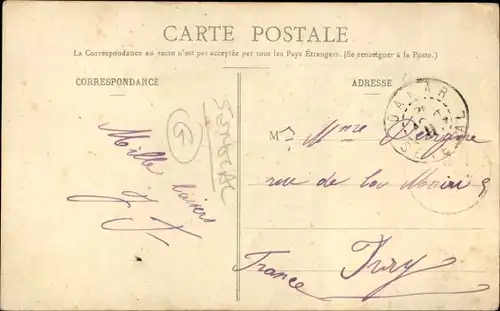 CARTE POSTALE
La Correspondance au recto n'est pas acceptée par tous les Pays Étrangers. (Se renseigner à la Poste.)
CORRESPONDANCE
ADRESSE
DAKAR
SENEGAL
Mille baisers
J
M
Mme
rue de la Mairie
Ivry
France